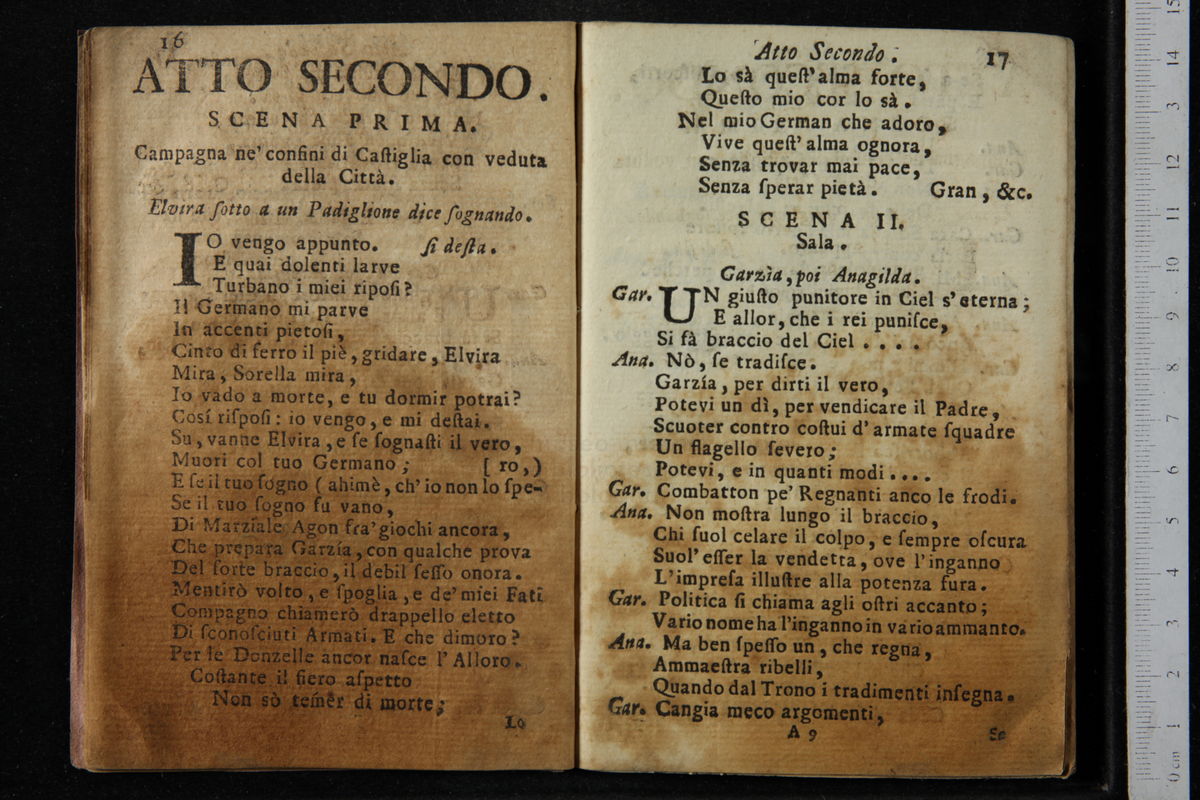 16
ATTO SECONDO.
SCENA PRIMA.
Campagna ne' confini di Caſtiglia con veduta
della Città.
Elvira ſotto a un Padiglione dice ſognando.
IO vengo appunto. ſi deſta.
E quai dolenti larve
Turbano i miei ripoſi?
Il Germano mi parve
In accenti pietoſi,
Cinto di ferro il piè, gridare, Elvira
Mira, Sorella mira,
Io vado a morte, e tu dormir potrai?
Cosí riſpoſi: io vengo, e mi deſtai.
Su, vanne Elvira, e ſe ſognaſti il vero,
Muori col tuo Germano; [ ro,)
E ſe il tuo ſogno ( ahimè, ch' io non lo ſpe-
Se il tuo ſogno fu vano,
Di Marziale Agon fra' giochi ancora,
Che prepara Garzía, con qualche prova
Del forte braccio, il debil ſeſſo onora.
Mentirò volto, e ſpoglia, e de' miei Fati
Compagno chiamerò drappello eletto
Di ſconoſciuti Armati. E che dimoro?
Per le Donzelle ancor naſce l' Alloro.
Coſtante il fiero aſpetto
Non sò temer di morte;
Lo
Atto Secondo. 17
Lo sà queſt' alma forte,
Queſto mio cor lo sà.
Nel mio German che adoro,
Vive queſt' alma ognora,
Senza trovar mai pace,
Senza ſperar pietà. Gran, &c.
SCENA II.
Sala.
Garzìa, poi Anagilda.
Gar. UN giuſto punitore in Ciel s' eterna;
E allor, che i rei puniſce,
Si fà braccio del Ciel . . . .
Ana. Nò, ſe tradiſce.
Garzía, per dirti il vero,
Potevi un dì, per vendicare il Padre,
Scuoter contro coſtui d' armate ſquadre
Un flagello ſevero;
Potevi, e in quanti modi . . . .
Gar. Combatton pe' Regnanti anco le frodi.
Ana. Non moſtra lungo il braccio,
Chi ſuol celare il colpo, e ſempre oſcura
Suol' eſſer la vendetta, ove l' inganno
L' impreſa illuſtre alla potenza fura.
Gar. Politica ſi chiama agli oſtri accanto;
Vario nome ha l'inganno in vario ammanto.
Ana. Ma ben ſpeſſo un, che regna,
Ammaeſtra ribelli,
Quando dal Trono i tradimenti inſegna.
Gar. Cangia meco argomenti,
A 9 Se
15
14
13
12
11
10
9
8
7
6
5
4
3
2
1
0 cm